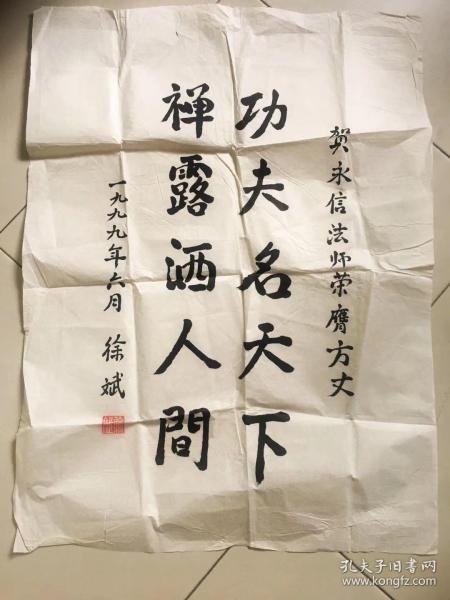 贺永信法师荣膺方丈
功夫名天下
禅露洒人間
一九九九年六月
徐斌
孔夫子旧书网
www.kongfz.com